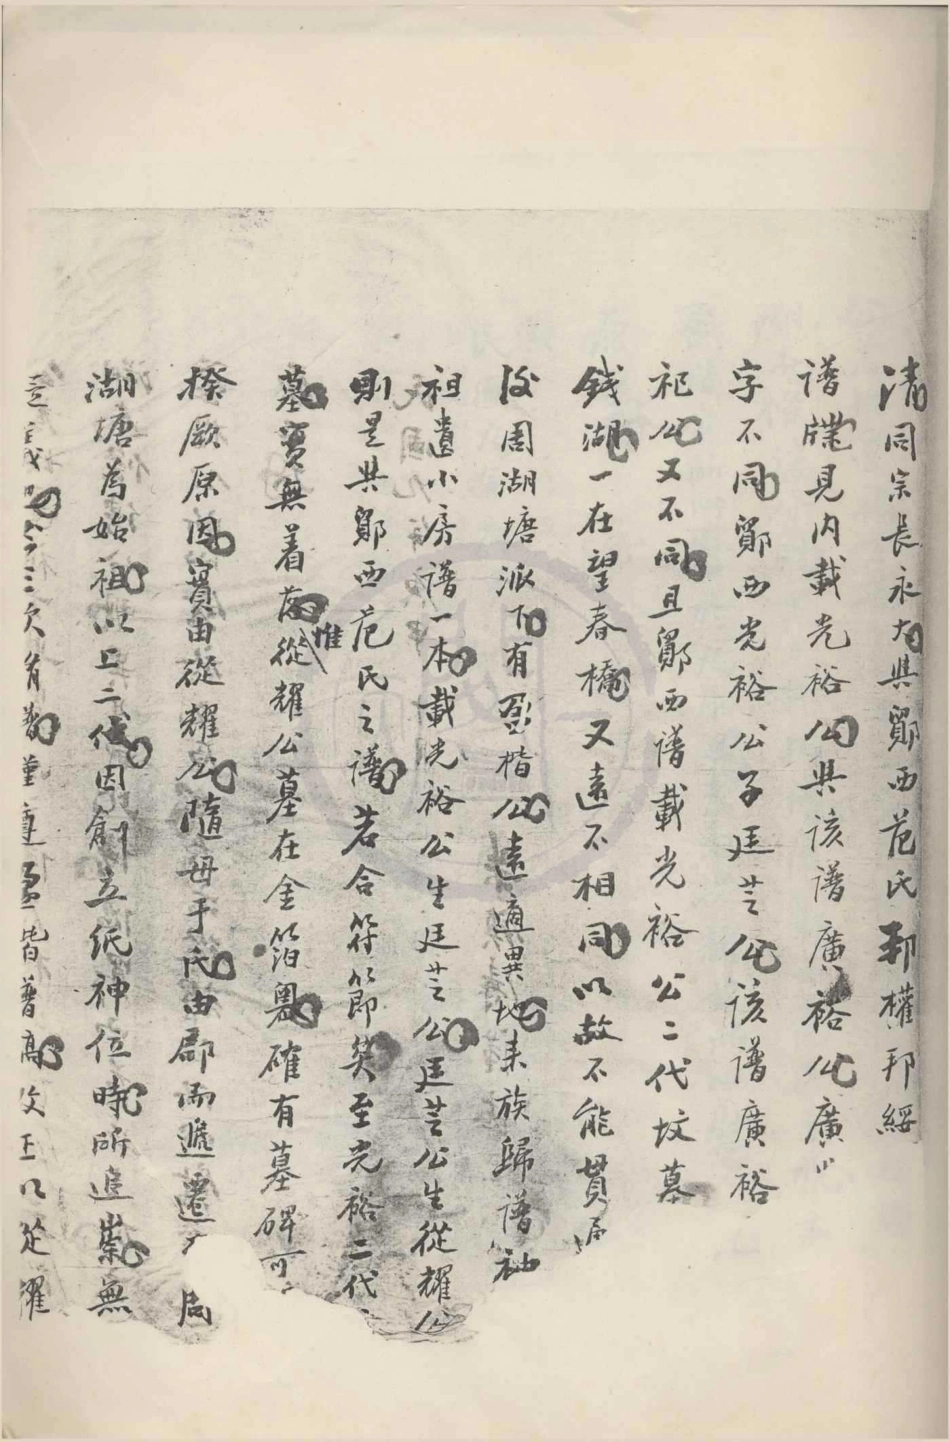 清同宗長永大與鄞西范氏邦權邦綏
譜牒見内載光裕公與該譜廣裕公廣
字不同鄞西光裕公子廷芝公該譜廣裕
祀公又不同且鄞西譜載光裕公二代坟墓
錢湖一在望春橋又遠不相同以故不能貫
後周湖塘派下有盈楷公遠適異地来族歸譜袖
祖遺小房譜一本載光裕公生廷芝公廷芝公生從耀公
則是與鄞西范氏之譜若合符節矣至光裕二代
墓實無着落惟從耀公墓在金箔嶴確有墓碑可
揆厥原因實由從耀公隨母于氏由郡而遞遷 周
湖塘為始祖以上二代因創立紙神位時所追崇無
今三次 皆 高 以從耀